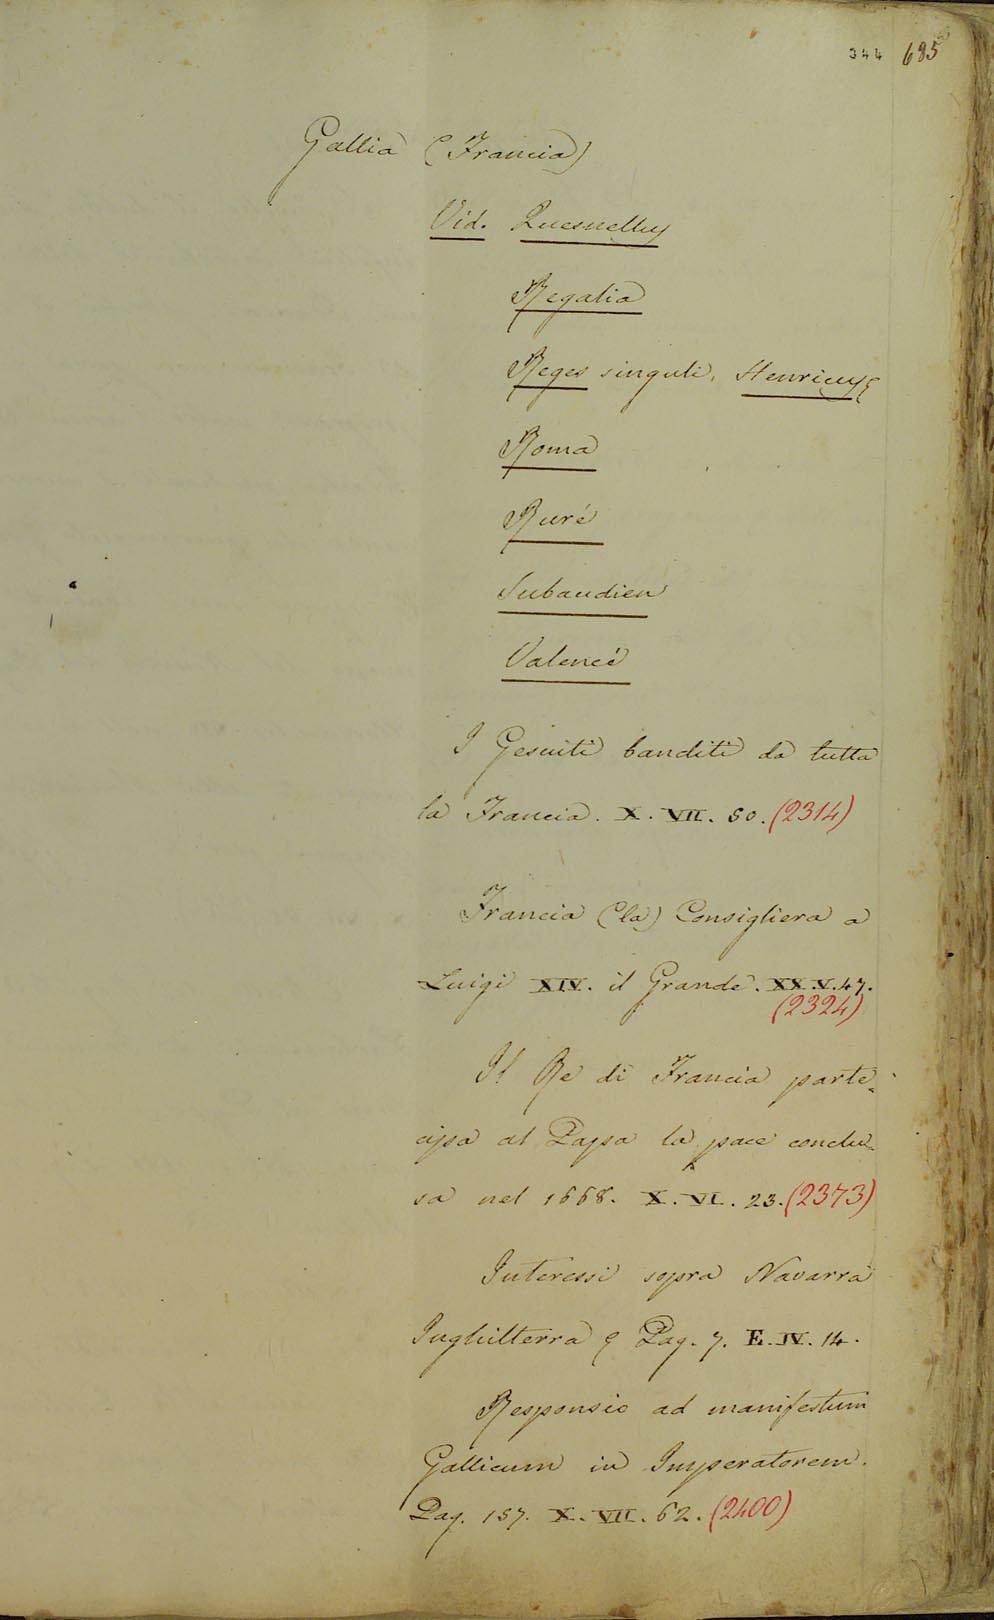 344 685
Gallia (Francia)
Vid. Quesnellus
Regalia
Reges singuli, Henricus
Roma
Ruré
Subaudien
Valencé
I Gesuiti banditi da tutta
la Francia. X. VII. 50. (2314)
Francia (la) Consigliera a
Luigi XIV. il Grande. XX.V.47.
(2324)
Il Re di Francia parte-
cipa al Papa la pace conclu-
sa nel 1668. X. VI. 23. (2373)
Interessi sopra Navarra
Inghilterra Pag. 7. E. IV. 14.
Responsio ad manifestum
Gallicum in Imperatorem.
Pag. 157. X. VII. 62. (2400)